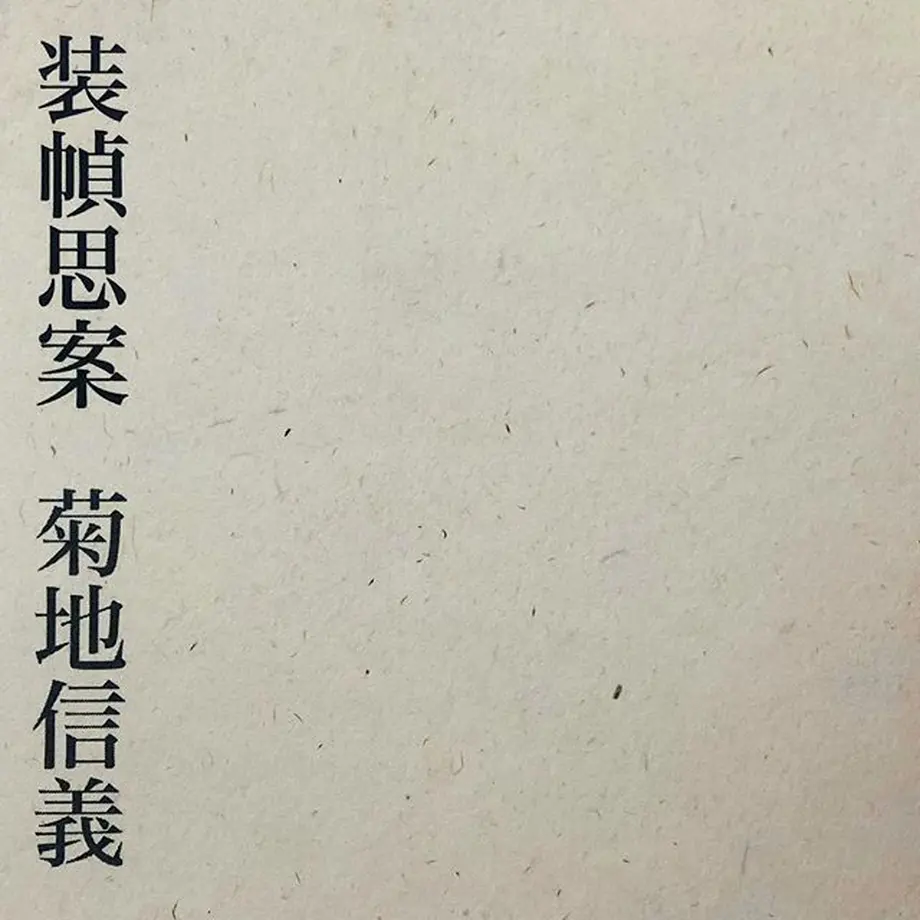 装幀思案 菊地信義